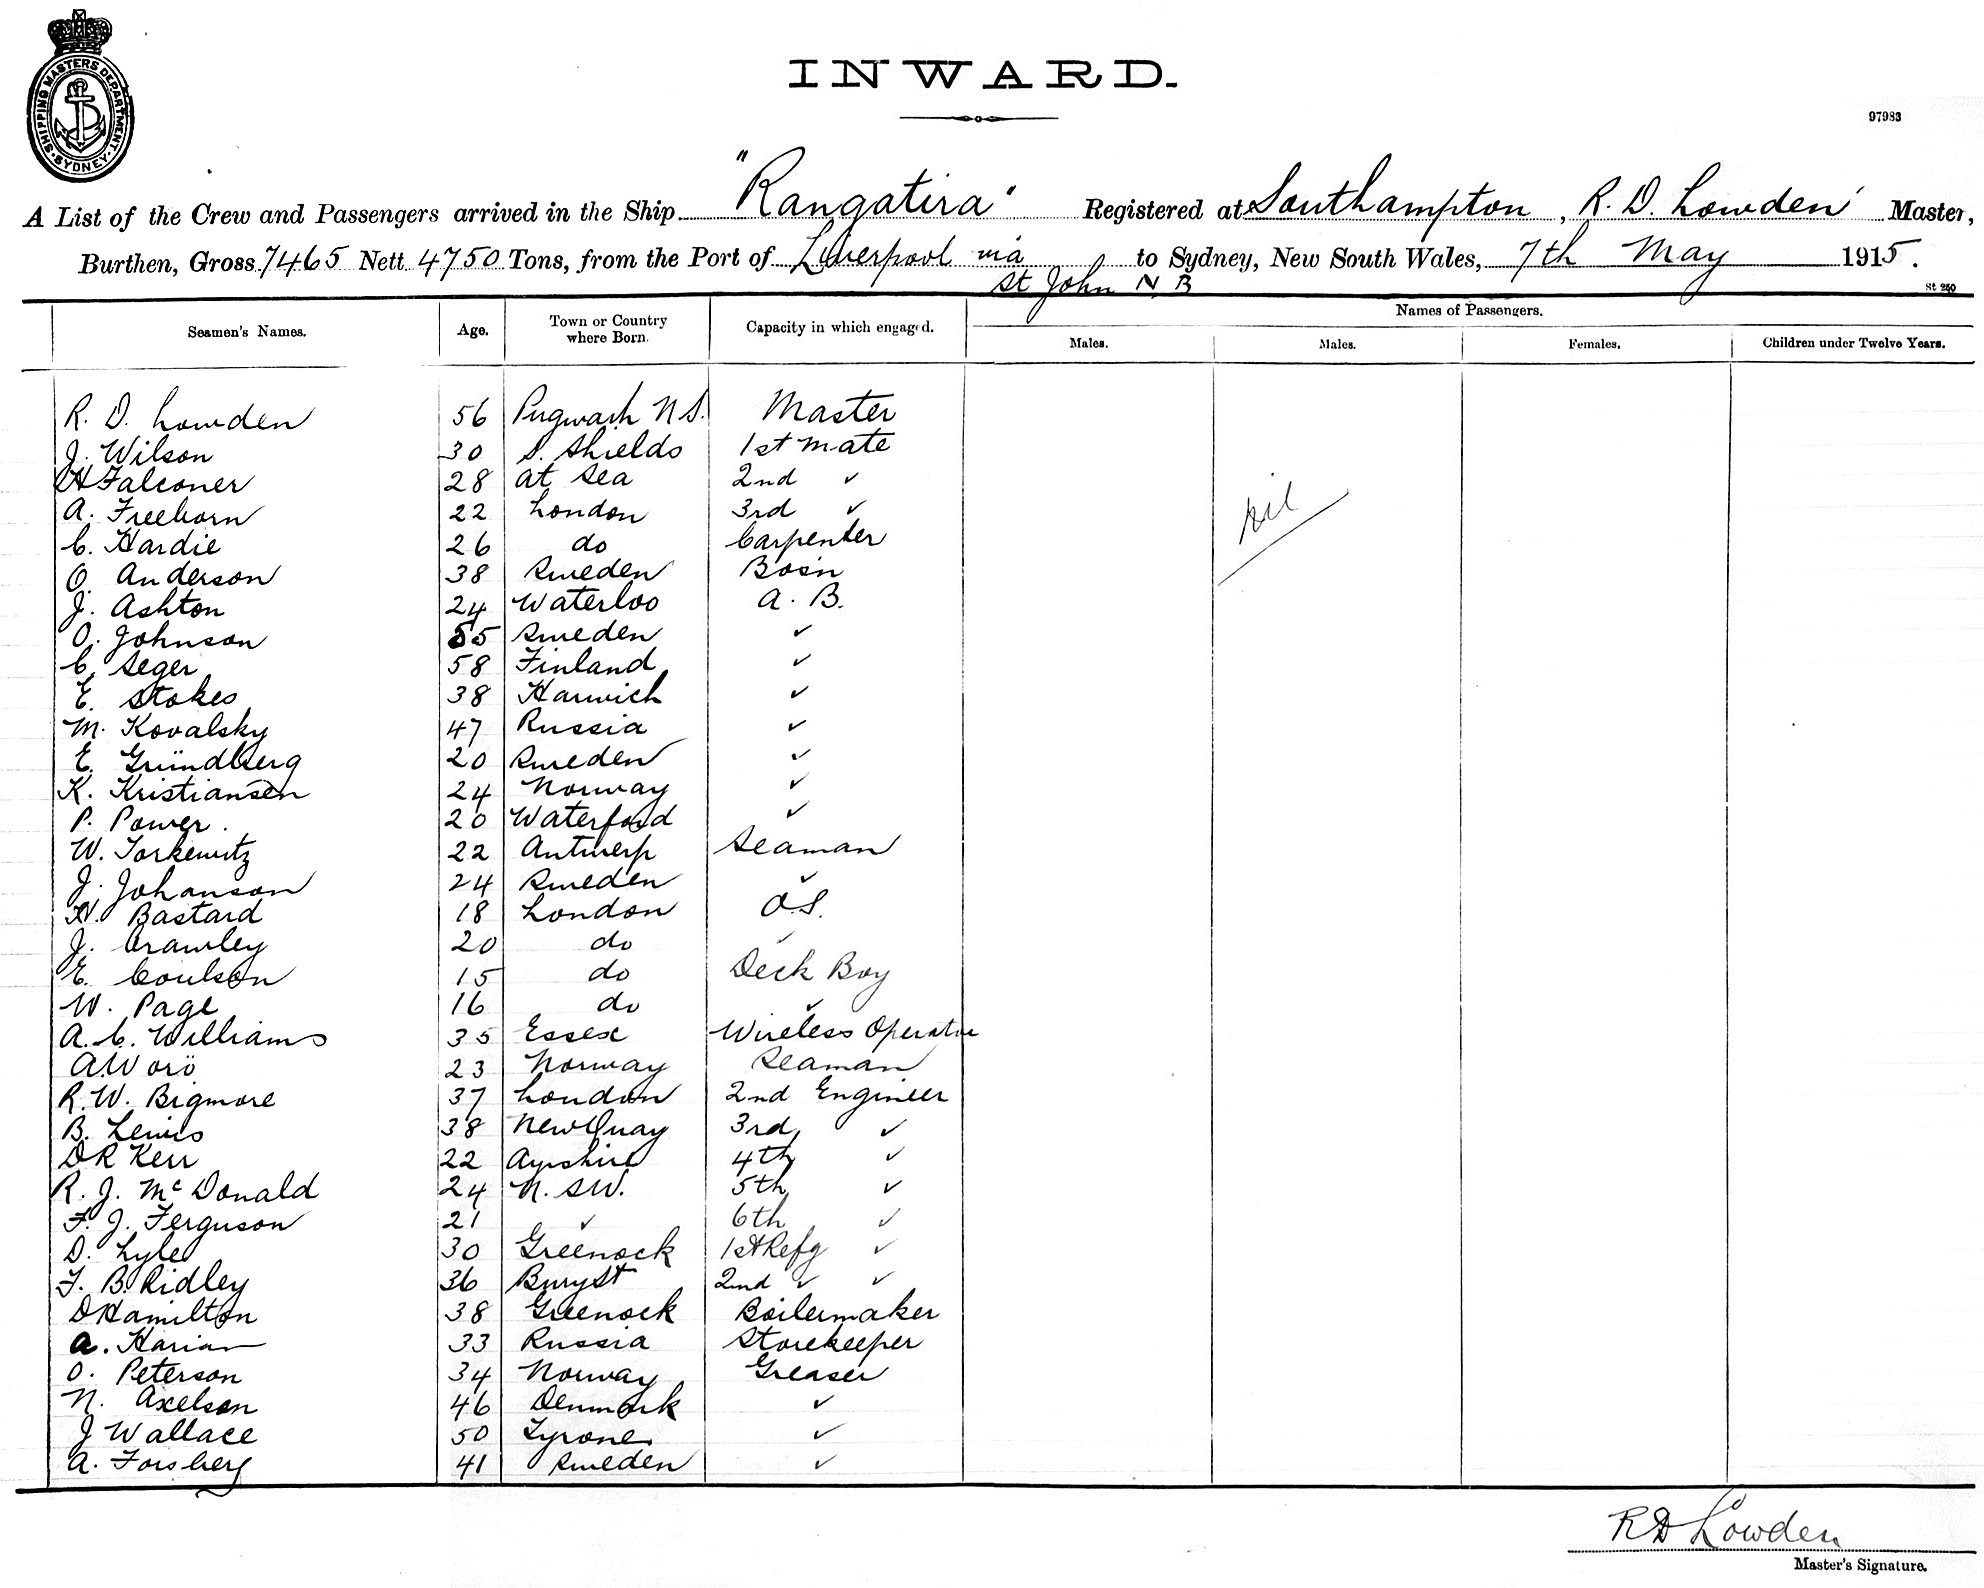 SHIPPING MASTERS DEPARTMENT
SYDNEY
INWARD.
97983
A List of the Crew and Passengers arrived in the Ship "Rangatira" Registered at Southampton, R. D. Lowden Master,
Burthen, Gross 7465 Nett 4750 Tons, from the Port of Liverpool via to Sydney, New South Wales, 7th May 1915.
St John N B
St 250
Seamen's Names. Age. Town or Country where Born. Capacity in which engaged. Names of Passengers.
Males. Males. Females. Children under Twelve Years.
R. D. Lowden 56 Pugwash N S. Master
J. Wilson 30 S. Shields 1st Mate
H Falconer 28 at Sea 2nd ✓
A. Freeborn 22 London 3rd ✓
nil
C. Hardie 26 do Carpenter
O. Anderson 38 Sweden Bosn
J. Ashton 24 Waterloo A. B.
O. Johnson 55 Sweden ✓
C. Seger 58 Finland ✓
E. Stokes 38 Harwich ✓
M. Kovalsky 47 Russia ✓
E. Gründberg 20 Sweden ✓
K. Kristiansen 24 Norway ✓
P. Power. 20 Waterford ✓
W. Torkewitz 22 Antwerp Seaman
J. Johanson 24 Sweden ✓
H. Bastard 18 London O.S.
J. Crawley 20 do ✓
E. Coulson 15 do Deck Boy
W. Page 16 do ✓
A. C. Williams 35 Essex Wireless Operator
A. Worö 23 Norway Seaman
R. W. Bigmore 37 London 2nd Engineer
B. Lewis 38 New Quay 3rd ✓
D R Kerr 22 Ayrshire 4th ✓
R. J. McDonald 24 N. S W. 5th ✓
F. J. Ferguson 21 ✓ 6th ✓
D. Lyle 30 Greenock 1st Refg ✓
F. B. Ridley 36 Bury St 2nd ✓ ✓
D Hamilton 38 Greenock Boilermaker
A. 33 Russia Storekeeper
O. Peterson 34 Norway Greaser
N. Axelson 46 Denmark ✓
J Wallace 50 Tyrone ✓
A. Forsberg 41 Sweden ✓
R D Lowden
Master's Signature.